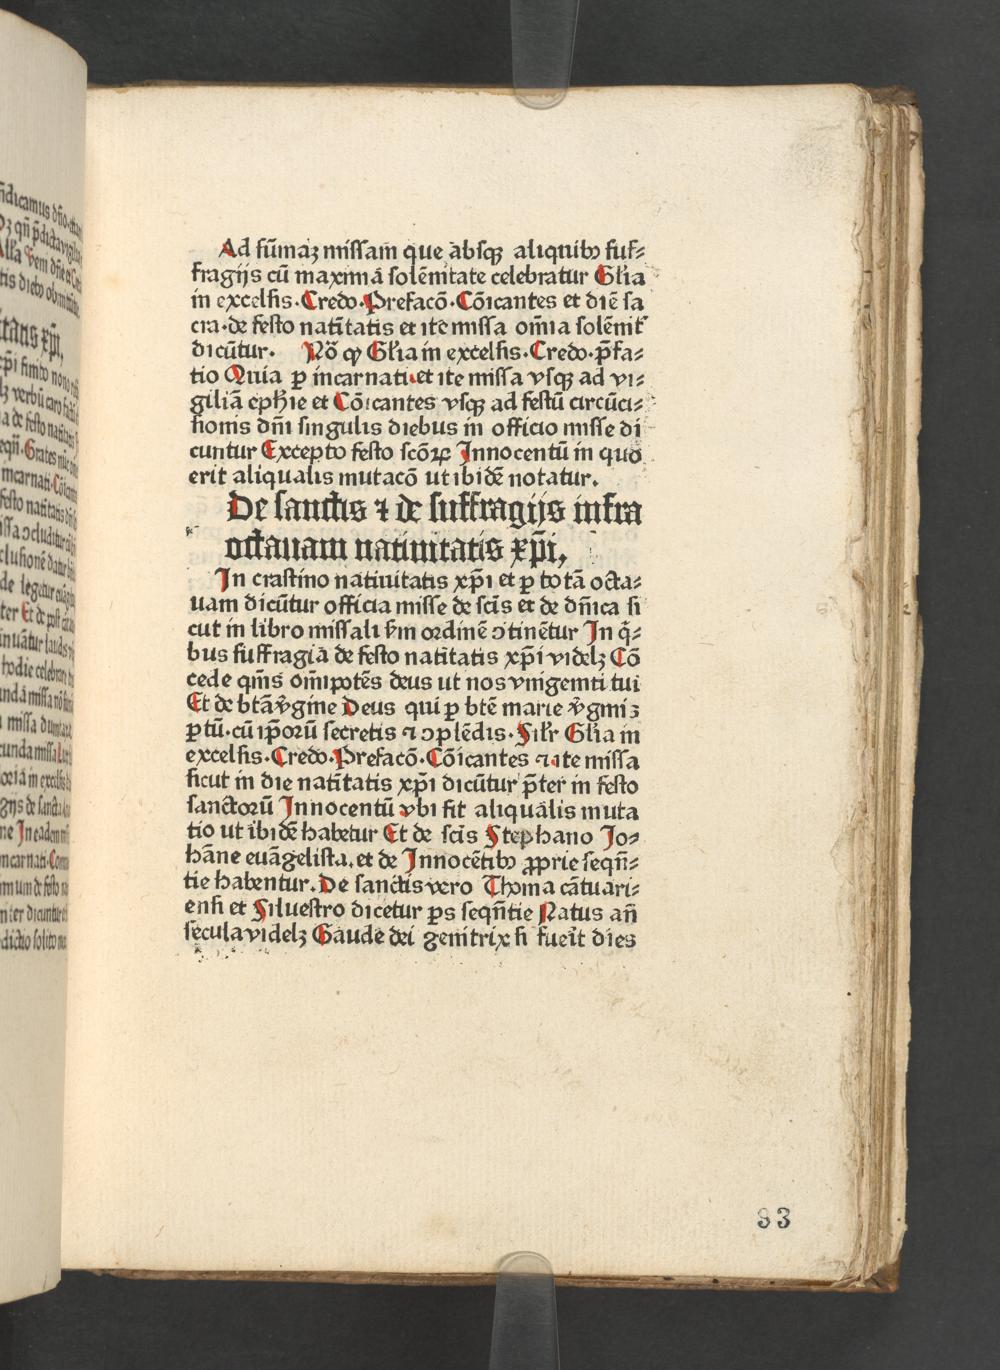 Ad sūmaꝫ missam que absqꝫ aliquibꝰ suf⸗
fragijs cū maxima solēnitate celebratur Glīa
in excelsis. Credo. Prefacō. Cōicantes et diē sa
cra. de festo natītatis et ite missa om̄ia solēnit᷑
dicūtur. Nō qꝫ Glīa in excelsis. Credo. p̄fa⸗
tio Quia ꝑ incarnati. et ite missa vsqꝫ ad vi⸗
giliā epħie et Cōicantes vsqꝫ ad festū circūci⸗
sionis dn̄i singulis diebus in officio misse di
cuntur Excepto festo scōꝝ Innocentū in quo
erit aliqualis mutacō ut ibidē notatur.
De sanctis ⁊ de suffragijs infra
octauam natiuitatis xp̄i,
In crastino natiuitatis xp̄i et ꝑ totā octa⸗
uam dicūtur officia misse de scīs et de dn̄ica si
cut in libro missali ẜm ordinē ꝯtinētur In q̄⸗
bus suffragia de festo natītatis xp̄i videlꝫ Cō
cede qm̄s om̄ipotēs deus ut nos vnigeniti tui
Et de btā v̄gine Deus qui ꝑ btē marie v̄giniꝫ
ꝑtū. cū ip̄orū secretis ⁊ ꝯplēdis. Silꝛ Glīa in
excelsis. Credo. Prefacō. Cōicantes ⁊. ite missa
sicut in die natītatis xp̄i dicūtur p̄ter in festo
sanctorū Innocentū vbi fit aliqualis muta
tio ut ibidē habetur Et de scīs Stephano Jo⸗
hāne euāgelista. et de Innocētibꝰ ꝓprie seqn̄⸗
tie habentur. De sanctis vero Thoma cātuari⸗
ensi et Siluestro dicetur ꝑs seqn̄tie Natus an̄
secula videlꝫ Gaude dei genitrix si fuerit dies
93